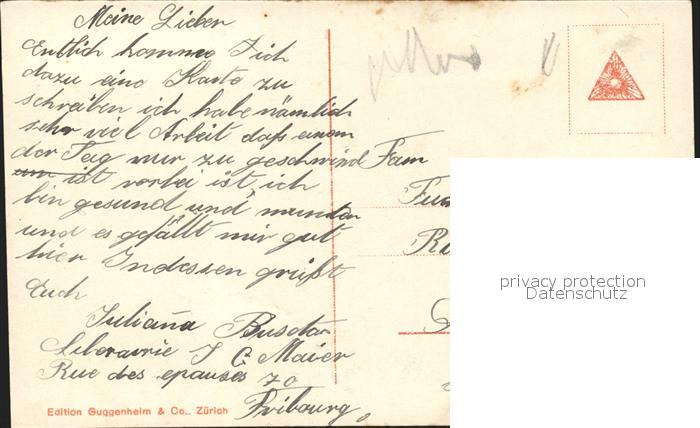 Meine Lieber
Entlich komme ich
dazu eine Karte zu
schreiben ich habe nämlich
sehr viel Arbeit dass einem
der Tag nur zu geschwind
ist vorbei ist, ich
bin gesund und munter
und es gefällt mir gut
hier Indessen grüßt
Euch
Juliana
Librairie J C Maier
Rue des epouses 70
Fribourg,
Edition Guggenheim & Co., Zürich
Fam
privacy protection
Datenschutz